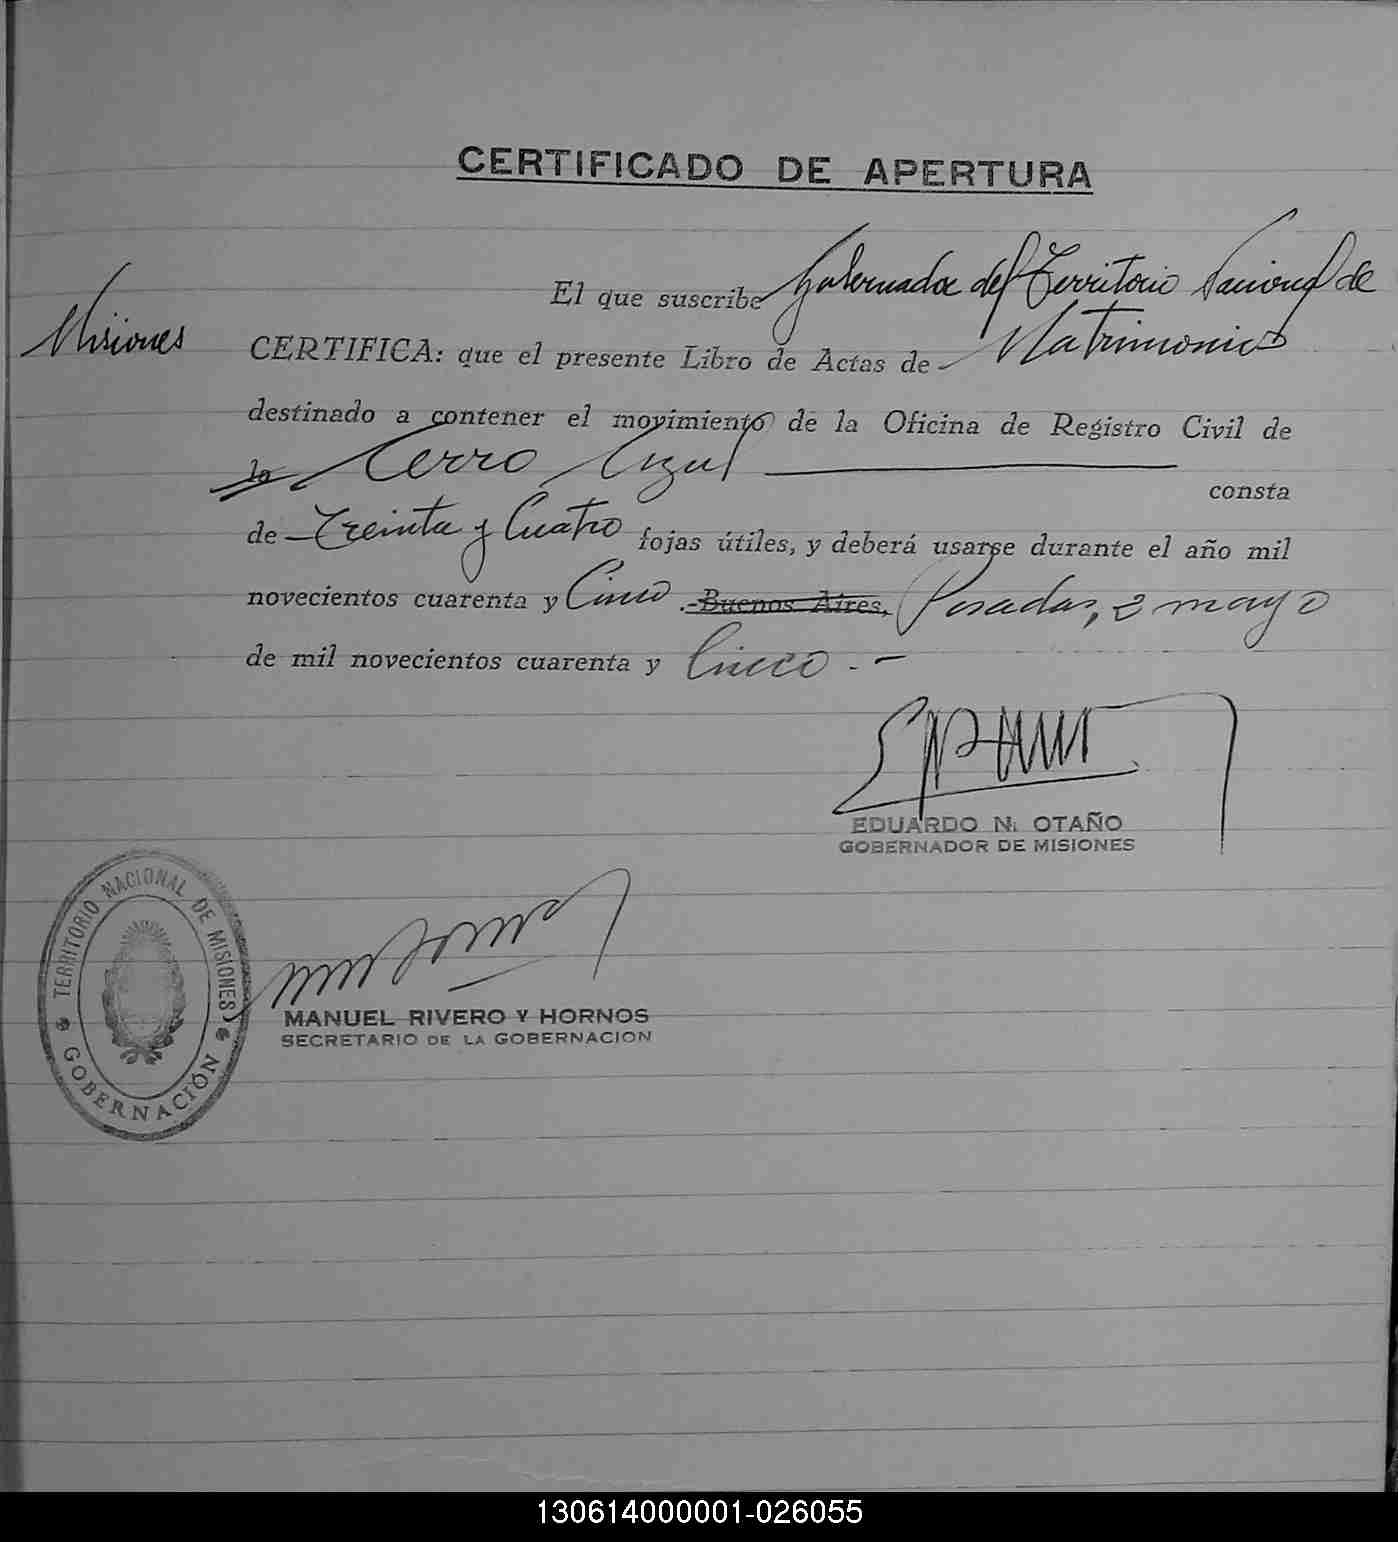 CERTIFICADO DE APERTURA
El que suscribe Gobernador del Territorio Nacional de
Misiones
CERTIFICA: que el presente Libro de Actas de Matrimonios
destinado a contener el movimiento de la Oficina de Registro Civil de
la Cerro Azul consta
de Treinta y Cuatro fojas útiles, y deberá usarse durante el año mil
novecientos cuarenta y Cinco .-Buenos Aires, Posadas, 2 mayo
de mil novecientos cuarenta y Cinco.-
EDUARDO N. OTAÑO
GOBERNADOR DE MISIONES
TERRITORIO NACIONAL DE MISIONES
GOBERNACIÓN
MANUEL RIVERO Y HORNOS
SECRETARIO DE LA GOBERNACION
130614000001-026055